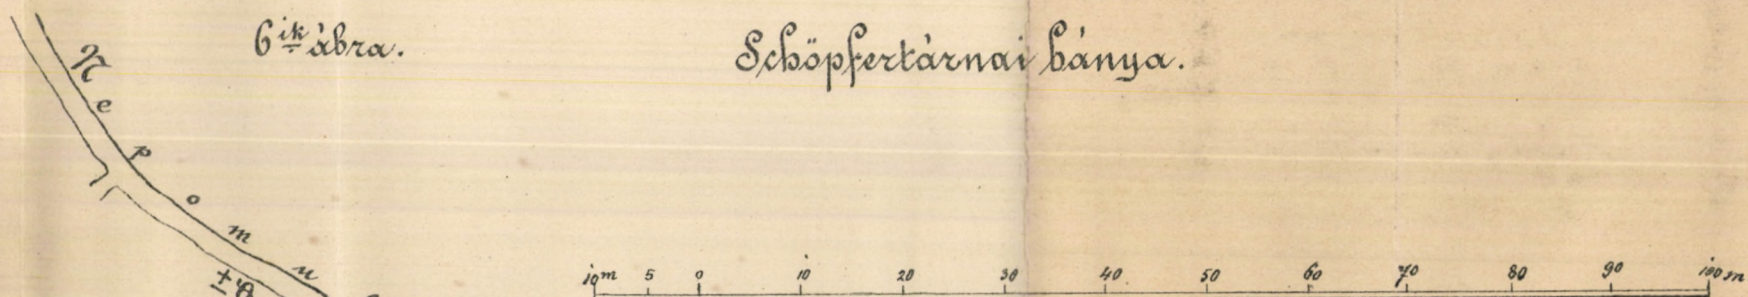 6ik ábra.
Schöpfertárnai bánya.
Nepomu
10m 5 0 10 20 30 40 50 60 70 80 90 100m